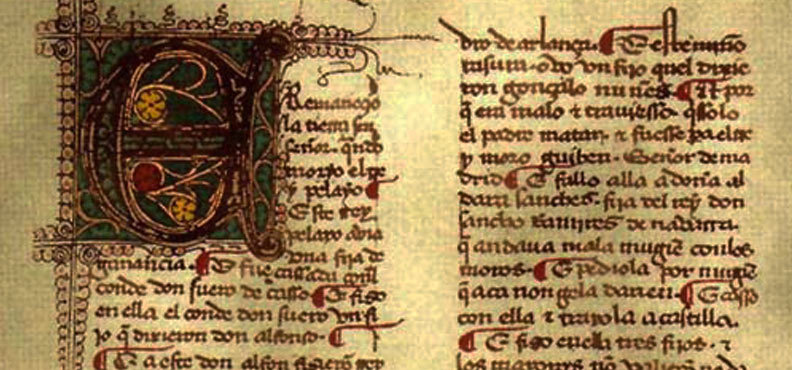 E Remaneçio
la tierra sin
señor. qndo
morio el rre
y pelayo
Este rey
pelayo auia
vna fija de
ganançia. E fue cassada con el
conde don suero de casso. E fiso
en ella el conde don suero vn fi
jo q̃ dixieron don alfonso.
E a este don alfon fisieron rey
dro de arlança. E este nuño
rasura. odo vn fijo quel dixie
ron gonçalo nuñes. E por
q̃ era malo τ trauiesso. q̃ssolo
el padre matar. τ fuesse pa el rre
y moro guiben. Señor de ma
drid. E fallo alla a doña al
dara sanches. fija del rey don
sancho Ramires de nauarra.
q̃ andaua mala mugiẽ con los
moros. E pediola por mugiẽ
q̃ aca non gela darien. E casso
con ella τ traxola a castilla.
E fiso en ella tres fijos. τ
los mayores nõ valierõ